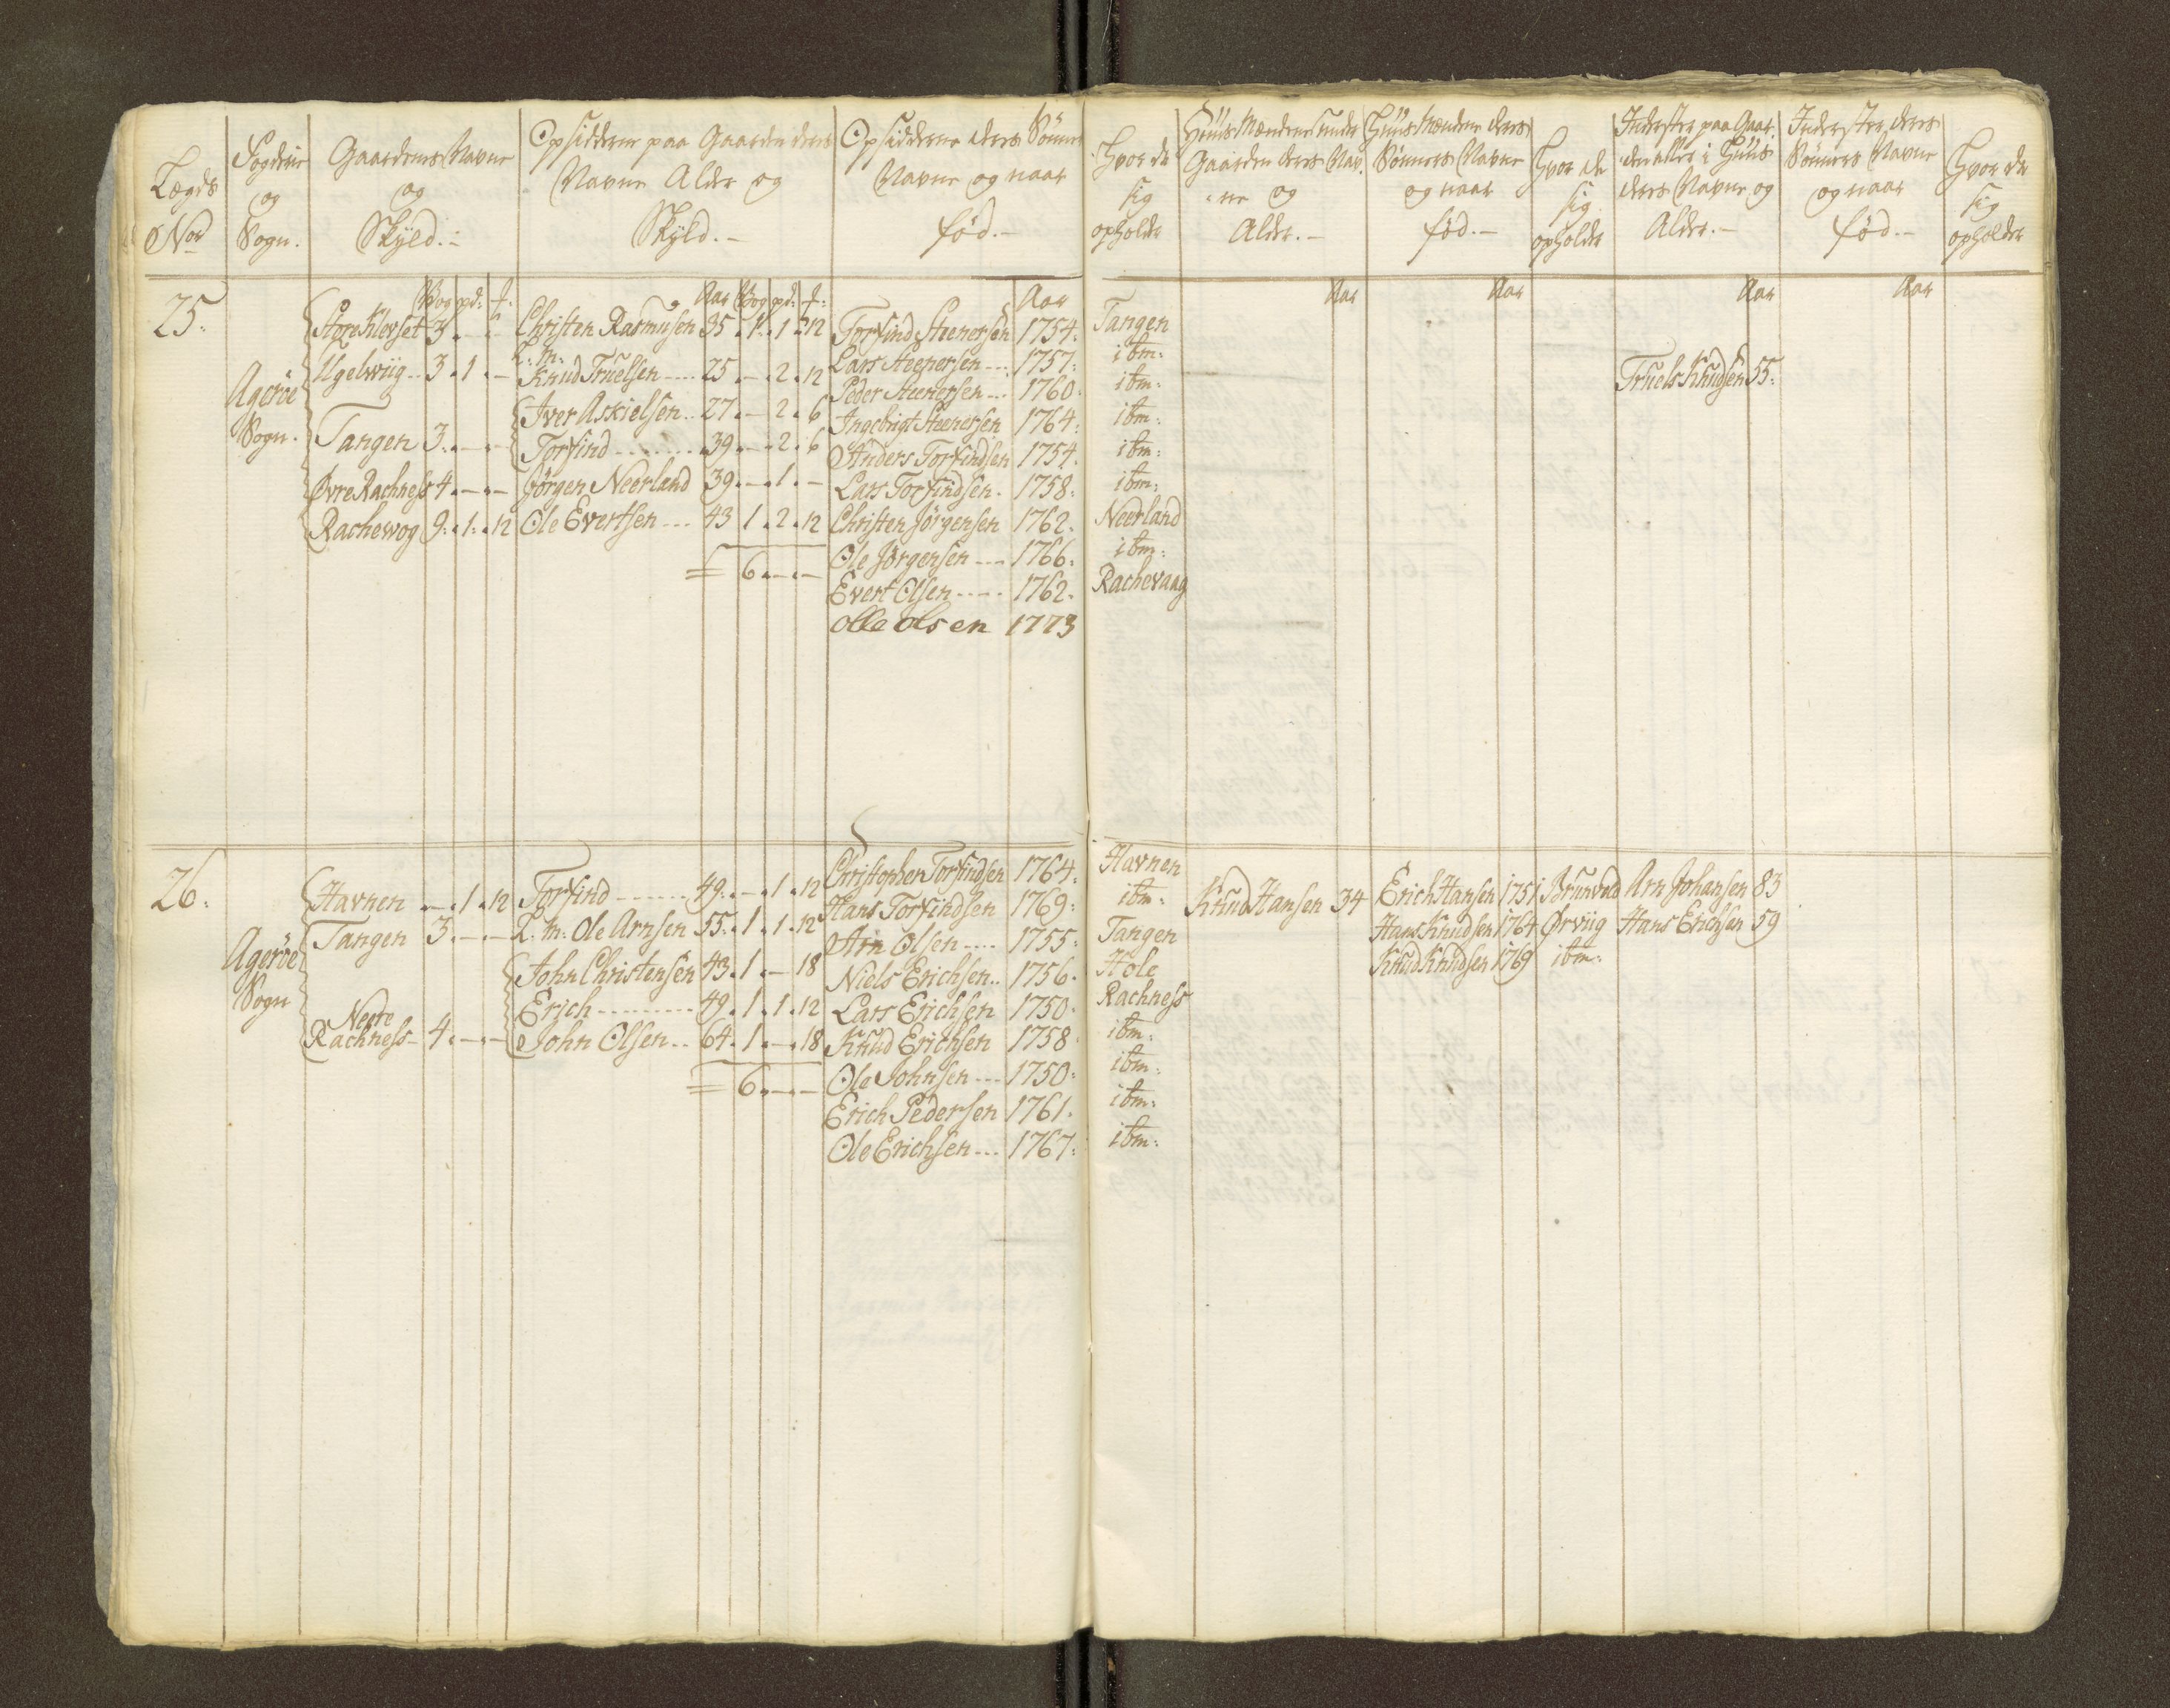 Lægds No
Sogdeie og Sogn.
Gaardenes Navne og Skyld.-
Opsidderne paa Gaarden deres Navne Alder og Skyld.-
Opsidderne deres Sønners Navne og naar fød.-
Hvor de sig opholder
Huus Mændene under Gaarden deres Navne og Alder.-
Huus Mændene deres Sønners Navne og naar fød.-
Hvor de sig opholder
Inderster paa Gaarden eller i Huus deres Navne og Alder.-
Inderster deres Sønners Navne og naar fød.-
Hvor de sig opholder
Vog pd: Aar Vog pd: Aar Aar Aar Aar Aar
25.
Agerøe Sogn.
Store Klevset 3 . - -
Ugelwiig .. 3 . 1 . -
Tangen 3 . - . -
Øvre Rachness 4 . - . -
Rachewog 9 . 1 . 12
Christen Rasmusen 35 . 1 . 1 . 12
L: m:
Knud Truelsen ---- 25 . - . 2 . 12
Iver Askielsen .. 27 . - 2 . 6
Torfind ------- 39 . - . 2 . 6
Jørgen Neerland 39 . - . 1 . -
Ole Evertsen --- 43 1 . 2 . 12
= 6 . - . -
Torfind Steenersen 1754. Tangen
Lars Steenersen --- 1757: ibm:
Peder Steenersen --- 1760. ibm:
Ingebrigt Steenersen 1764: ibm:
Anders Torfindsen 1754. ibm:
Lars Torfindsen . 1758. ibm:
Christen Jørgensen 1762. Neerland
Ole Jørgensen --- 1766. ibm:
Evert Olsen ---- 1762. Rachevaag
Olle olsen 1773
Truels Knudsen 55.
26.
Agerøe Sogn
Havnen . - . 1 . 12
Tangen 3 . - . -
Neere
Rachness - 4 . - . -
Torfind ------ 49 . - . 1 . 12
L. m: Ole Arnsen 55 . 1 . 1 . 12
John Christensen 43 . 1 . - 18
Erich -------- 49 . 1 . 1 . 12
John Olsen .. 64 . 1 . - . 18
= 6 . - . -
Christopher Torfindsen 1764. Havnen
Hans Torfindsen 1769: ibm:
Arn Olsen ---- 1755: Tangen
Niels Erichsen .. 1756. Hole
Lars Erichsen 1750. Rachness
Knud Erichsen 1758 ibm:
Ole Johnsen --- 1750: ibm:
Erich Pedersen 1761. ibm:
Ole Erichsen --- 1767: ibm:
Knud Hansen 34
Erich Hansen 1751 Brunvold
Hans Knudsen 1764 Ørviig
Knud Knudsen 1769 ibm:
Arn Johansen 83
Hans Erichsen 59